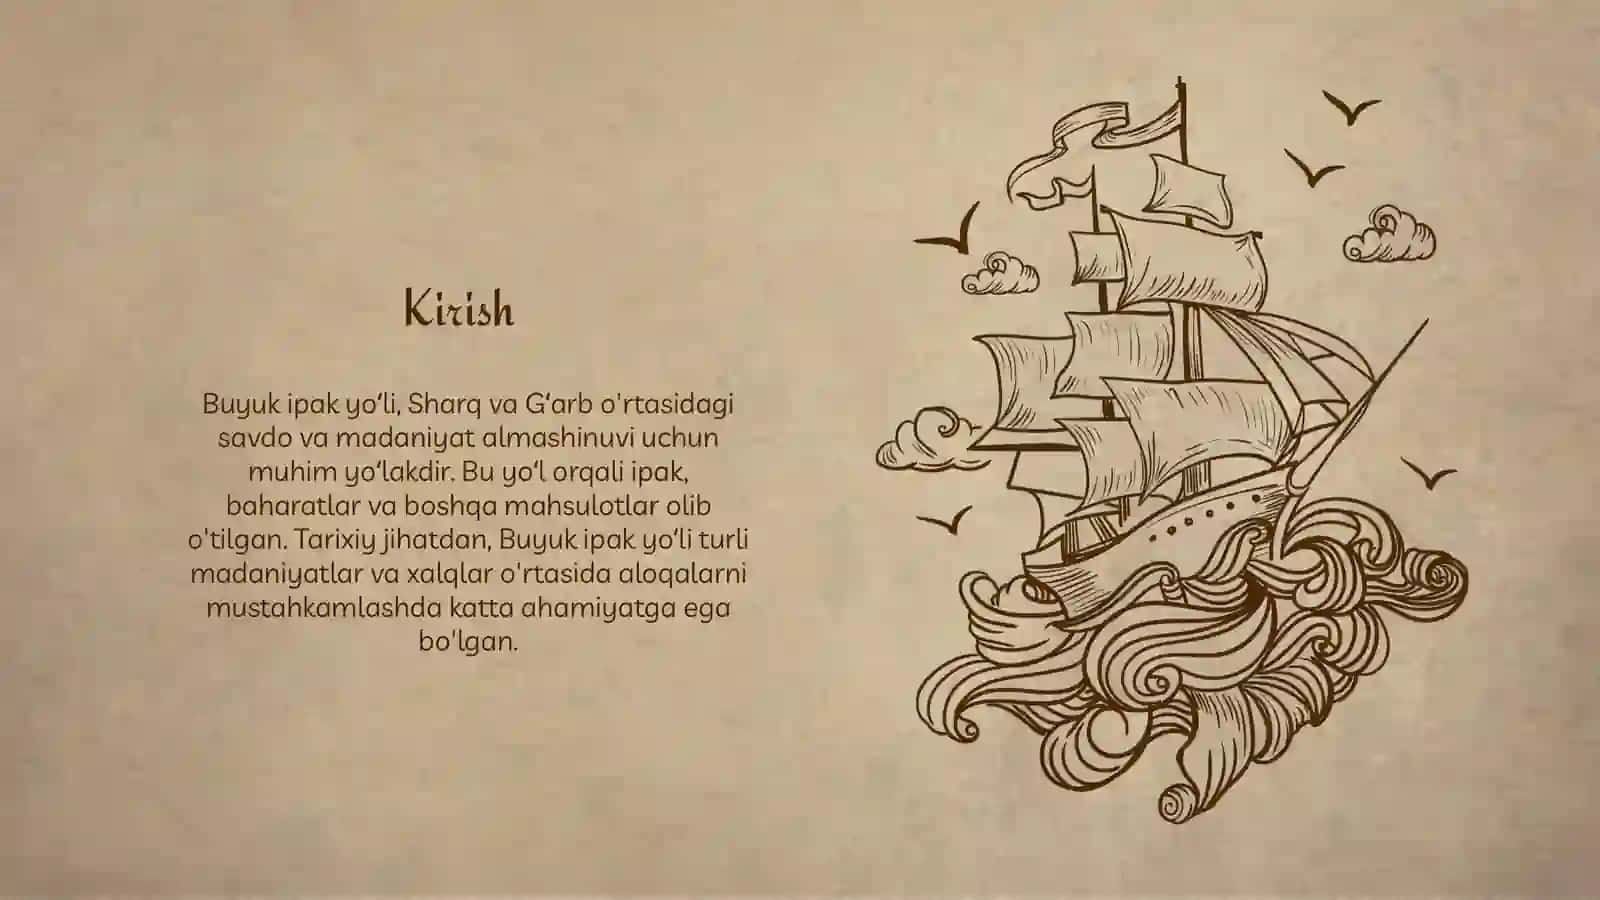 Kirish
Buyuk ipak yoʻli, Sharq va Gʻarb o'rtasidagi
savdo va madaniyat almashinuvi uchun
muhim yoʻlakdir. Bu yoʻl orqali ipak,
baharatlar va boshqa mahsulotlar olib
o'tilgan. Tarixiy jihatdan, Buyuk ipak yoʻli turli
madaniyatlar va xalqlar o'rtasida aloqalarni
mustahkamlashda katta ahamiyatga ega
bo'lgan.